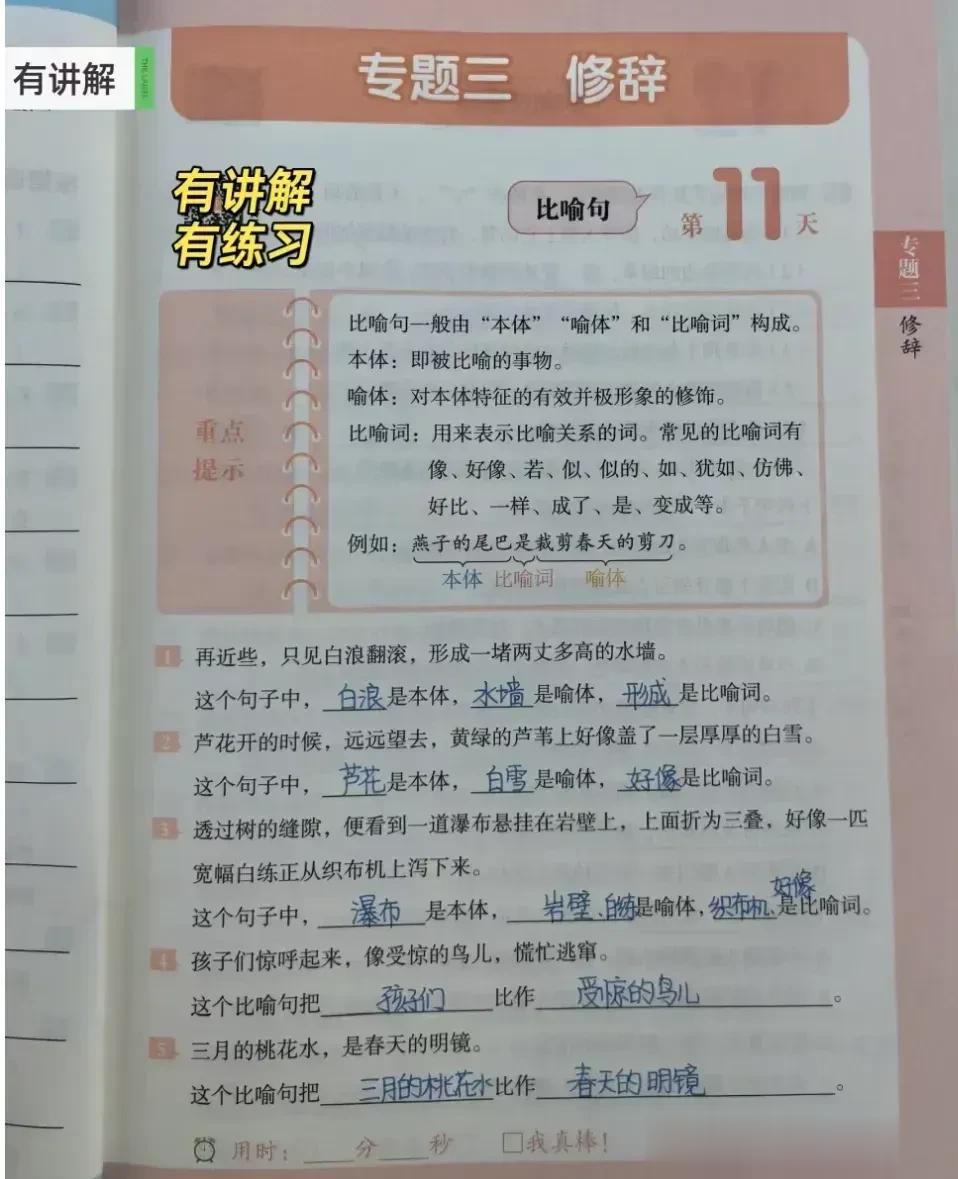 有讲解
THE LABEL
专题三 修辞
有讲解
有练习
比喻句
第11天
专题三 修辞
重点
提示
比喻句一般由“本体”“喻体”和“比喻词”构成。
本体：即被比喻的事物。
喻体：对本体特征的有效并极形象的修饰。
比喻词：用来表示比喻关系的词。常见的比喻词有
像、好像、若、似、似的、如、犹如、仿佛、
好比、一样、成了、是、变成等。
例如：燕子的尾巴是裁剪春天的剪刀。
本体 比喻词 喻体
1 再近些，只见白浪翻滚，形成一堵两丈多高的水墙。
这个句子中，白浪是本体，水墙是喻体，形成是比喻词。
2 芦花开的时候，远远望去，黄绿的芦苇上好像盖了一层厚厚的白雪。
这个句子中，芦花是本体，白雪是喻体，好像是比喻词。
3 透过树的缝隙，便看到一道瀑布悬挂在岩壁上，上面折为三叠，好像一匹
宽幅白练正从织布机上泻下来。
好像
这个句子中，瀑布是本体，岩壁、白练是喻体，织布机、是比喻词。
4 孩子们惊呼起来，像受惊的鸟儿，慌忙逃窜。
这个比喻句把孩子们比作受惊的鸟儿。
5 三月的桃花水，是春天的明镜。
这个比喻句把三月的桃花水比作春天的明镜。
用时：____分____秒 □我真棒！